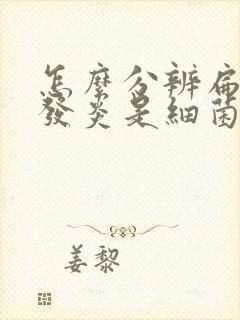 怎麼分辨扁
發炎是細菌
姜黎